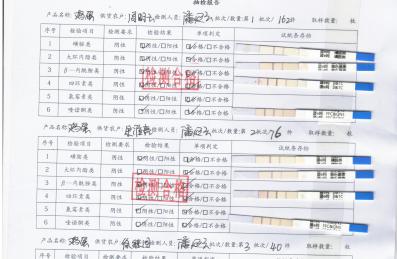 抽检报告
产品名称: 鸡蛋 供货农户: 检测人员: 批次/数量:第 1 批次/ 162 件 取样数量: 枚
序号 检验项目 检测要求 检验结果 单项判定 试纸条存档
1 磺胺类 阴性 ☑阴性/☐阳性 ☑合格/☐不合格
2 大环内酯类 阴性 ☑阴性/☐阳性 ☑合格/☐不合格
3 β-内酰胺类 阴性 ☑阴性/☐阳性 ☑合格/☐不合格
4 四环素类 阴性 ☑阴性/☐阳性 ☑合格/☐不合格
5 氯霉素类 阴性 ☑阴性/☐阳性 ☑合格/☐不合格
6 喹诺酮类 阴性 ☑阴性/☐阳性 ☑合格/☐不合格
检测合格
产品名称: 鸡蛋 供货农户: 检测人员: 批次/数量:第 2 批次/ 76 件 取样数量: 枚
序号 检验项目 检测要求 检验结果 单项判定 试纸条存档
1 磺胺类 阴性 ☑阴性/☐阳性 ☑合格/☐不合格
2 大环内酯类 阴性 ☑阴性/☐阳性 ☑合格/☐不合格
3 β-内酰胺类 阴性 ☑阴性/☐阳性 ☑合格/☐不合格
4 四环素类 阴性 ☑阴性/☐阳性 ☑合格/☐不合格
5 氯霉素类 阴性 ☑阴性/☐阳性 ☑合格/☐不合格
6 喹诺酮类 阴性 ☑阴性/☐阳性 ☑合格/☐不合格
检测合格
产品名称: 鸡蛋 供货农户: 检测人员: 批次/数量:第 3 批次/ 40 件 取样数量: 枚
序号 检验项目 检测要求 检验结果 单项判定 试纸条存档